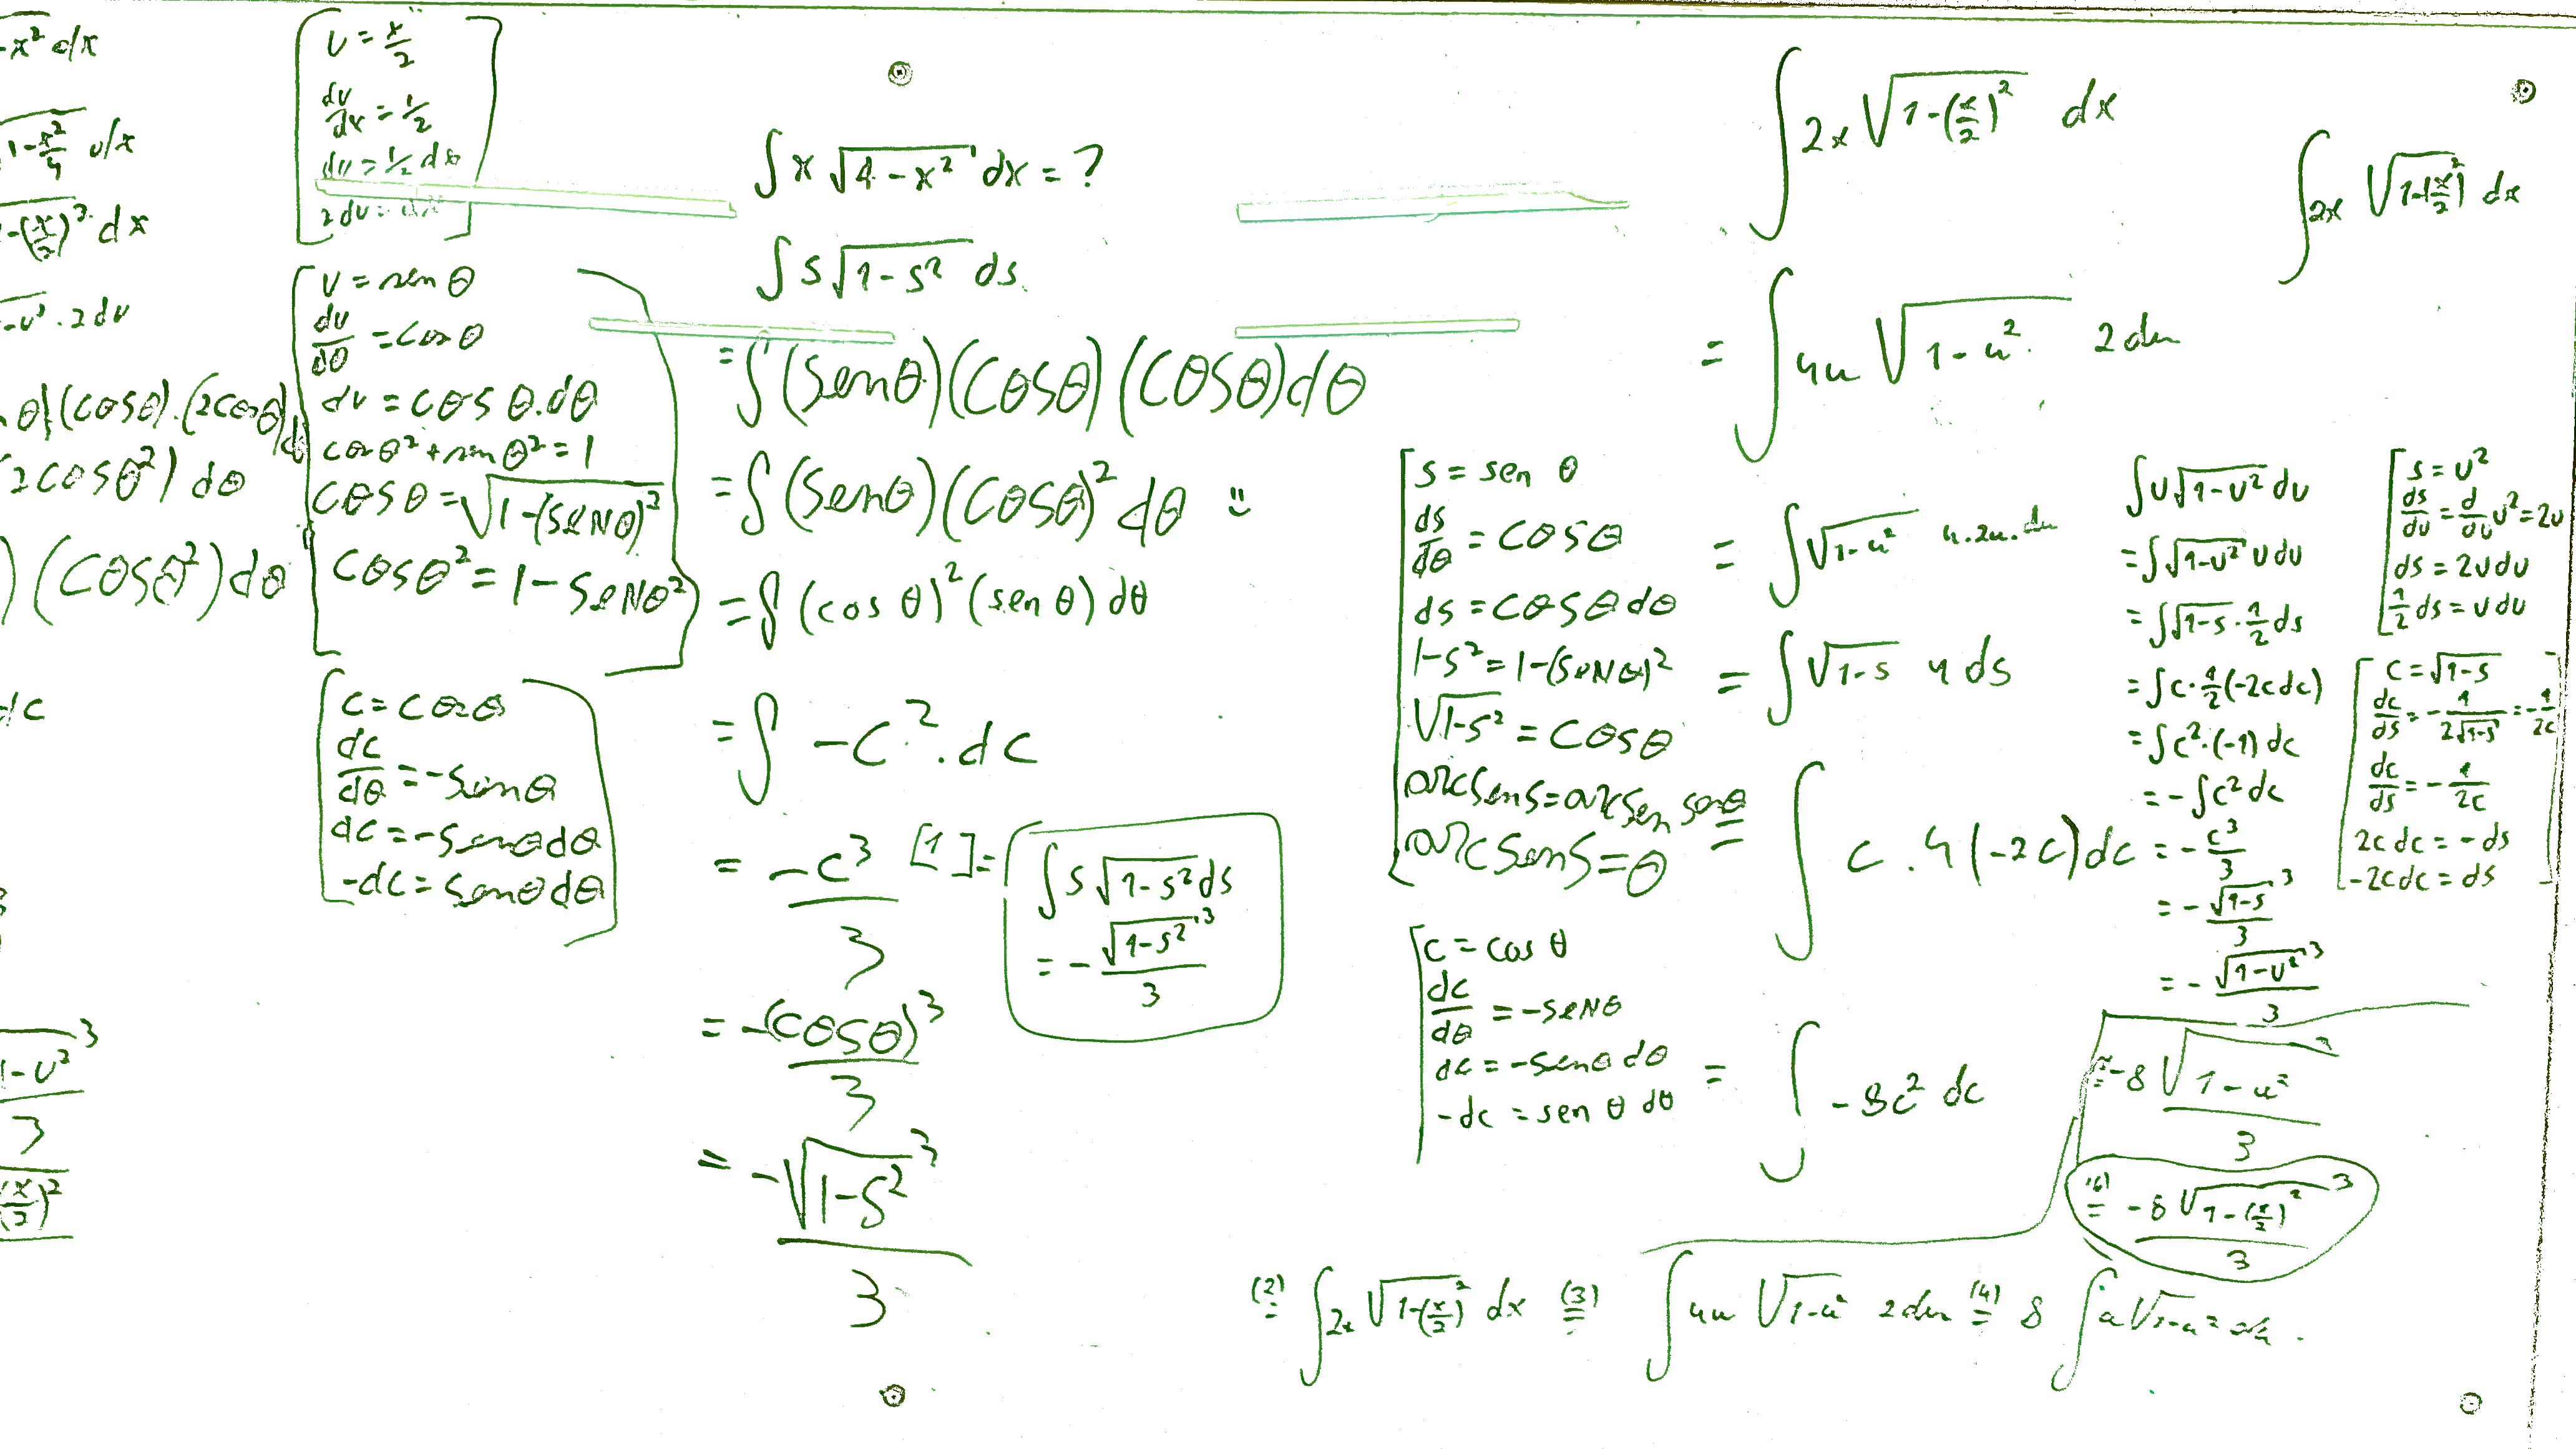 -x² dx
1-x²/4 dx
-(x/2)² dx
-u² . 2du
θ)(cosθ).(2cosθ)d
2cosθ²) dθ
)(cosθ²)dθ
dc
1-u² 3
3
(x/2)²
u = x/2
du/dx = 1/2
du = 1/2 dx
2du = dx
u = sen θ
du/dθ = cos θ
du = cos θ.dθ
cos θ² + sen θ² = 1
cos θ = √(1-(SENθ)²)
cos θ² = 1 - SENθ²
c = cos θ
dc/dθ = -sen θ
dc = -senθdθ
-dc = senθdθ
∫ x √(4-x²) dx = ?
∫ s √(1-s²) ds
= ∫ (senθ)(cosθ)(cosθ)dθ
= ∫ (senθ)(cosθ)² dθ
= ∫ (cos θ)² (sen θ) dθ
= ∫ -c². dc
= -c³/3 [1] =
= -(cosθ)³/3
= -√(1-s²)³/3
∫ s √(1-s²) ds
= - √(1-s²)³/3
s = sen θ
ds/dθ = cosθ
ds = cosθdθ
1-s² = 1-(SENθ)²
√(1-s²) = cosθ
arcsen s = arcsen senθ
arcsen s = θ
c = cos θ
dc/dθ = -senθ
dc = -senθ dθ
-dc = sen θ dθ
∫ 2x √(1-(x/2)²) dx
= ∫ 4u √(1-u²) 2du
= ∫ √(1-u²) 4.2u.du
= ∫ √(1-s) 4 ds
= ∫ c . 4(-2c)dc
= ∫ -8c² dc
∫ 2x √(1-(x/2)²) dx
∫ u√(1-u²) du
= ∫ √(1-u²) u du
= ∫ √(1-s) · 1/2 ds
= ∫ c · 1/2 (-2c dc)
= ∫ c² · (-1) dc
= - ∫ c² dc
= - c³/3
= - √(1-s)³/3
= - √(1-u²)³/3
s = u²
ds/du = d/du u² = 2u
ds = 2u du
1/2 ds = u du
c = √(1-s)
dc/ds = - 1/(2√(1-s)) = - 1/2c
dc/ds = - 1/2c
2c dc = -ds
-2c dc = ds
= -8 √(1-u²)³/3
(6) = -8 √(1-(x/2)²)³/3
(2) = ∫ 2x √(1-(x/2)²) dx (3) = ∫ 4u √(1-u²) 2du (4) = 8 ∫ u √(1-u²) du .